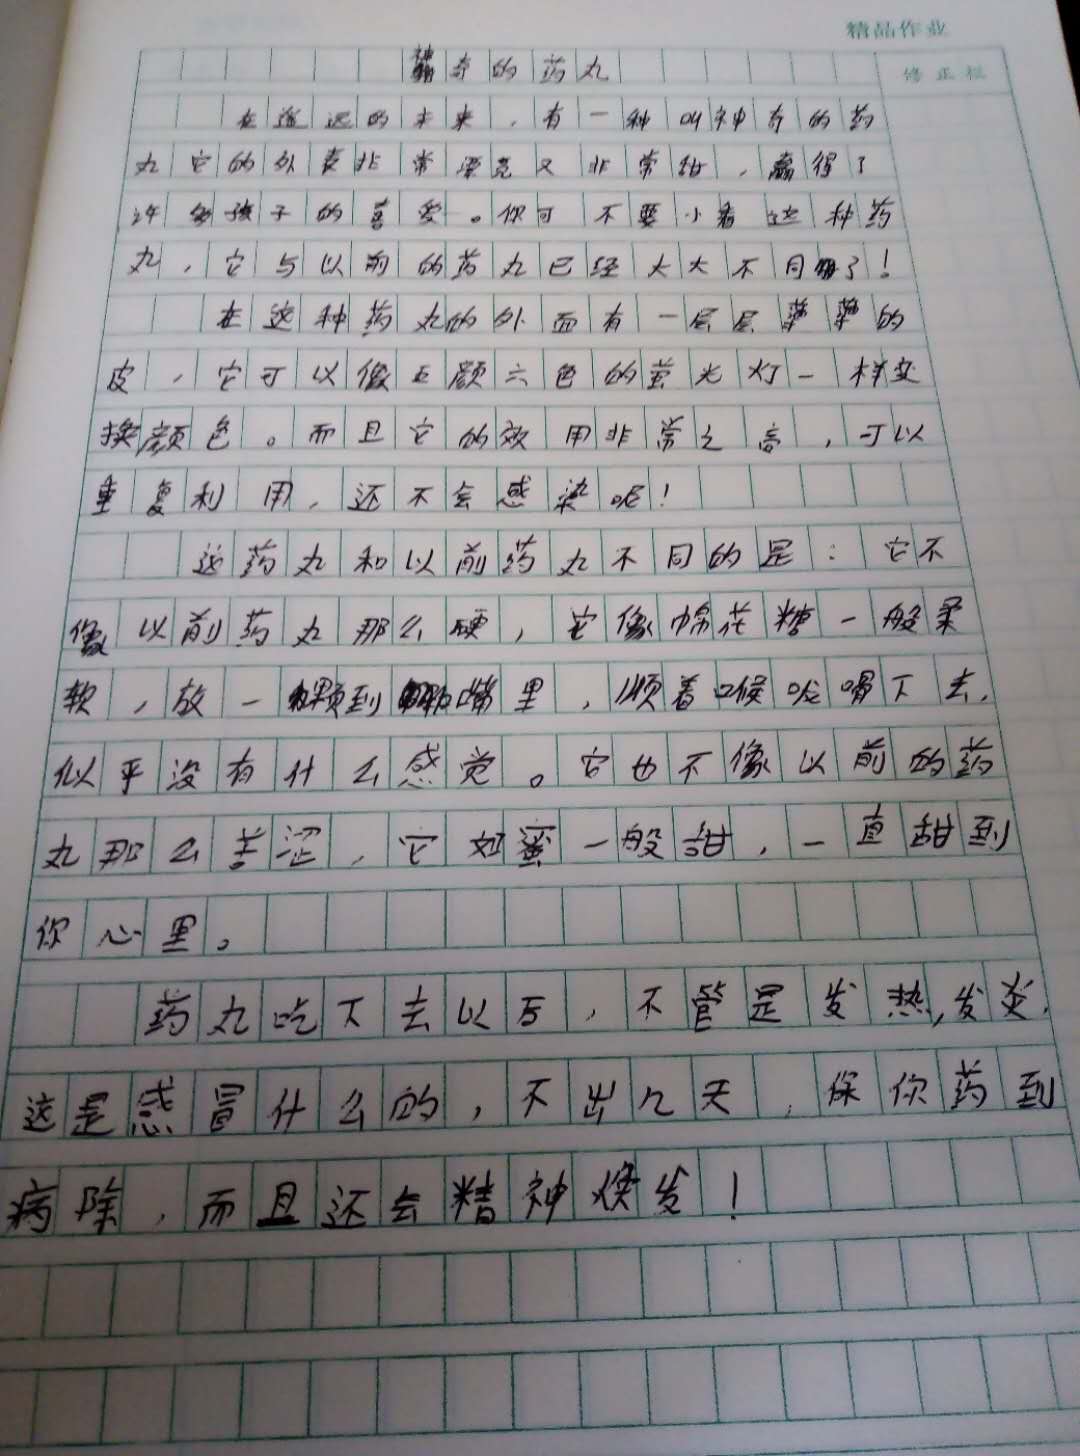 精品作业
神奇的药丸
修正栏
在遥远的未来，有一种叫神奇的药
丸它的外表非常漂亮又非常甜，赢得了
许多孩子的喜爱。你可不要小看这种药
丸，它与以前的药丸已经大大不同了！
在这种药丸的外面有一层层薄薄的
皮，它可以像五颜六色的萤光灯一样变
换颜色。而且它的效用非常之高，可以
重复利用，还不会感染呢！
这药丸和以前药丸不同的是：它不
像以前药丸那么硬，它像棉花糖一般柔
软，放一颗到嘴里，顺着喉咙滑下去，
似乎没有什么感觉。它也不像以前的药
丸那么苦涩，它如蜜一般甜，一直甜到
你心里。
药丸吃下去以后，不管是发热，发炎，
这是感冒什么的，不出几天，保你药到
病除，而且还会精神焕发！